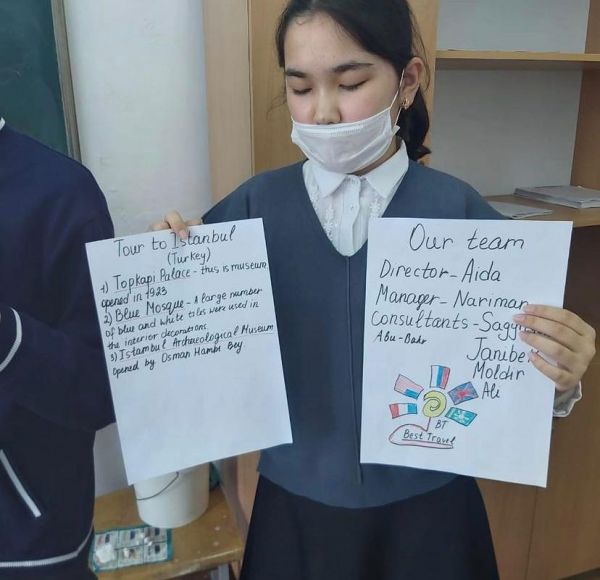 Tour to Istanbul
(Turkey)
1) Topkapi Palace - this is museum
opened in 1923
2) Blue Mosque - A large number
of blue and white tiles were used in
the interior decorations
3) Istambul Archaeological Museum
opened by Osman Hambi Bey.
Our team
Director - Aida
Manager - Nariman
Consultants -
Abu-Bakr
Moldir
Ali
BT
Best Travel